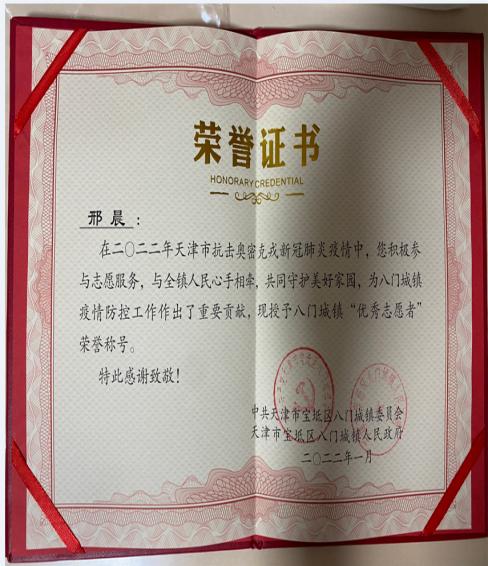 荣誉证书
HONORARY CREDENTIAL
邢晨：
在二〇二二年天津市抗击奥密克戎新冠肺炎疫情中，您积极参
与志愿服务，与全镇人民心手相牵，共同守护美好家园，为八门城镇
疫情防控工作作出了重要贡献，现授予八门城镇“优秀志愿者”
荣誉称号。
特此感谢致敬！
中共天津市宝坻区八门城镇委员会
天津市宝坻区八门城镇人民政府
二〇二二年一月